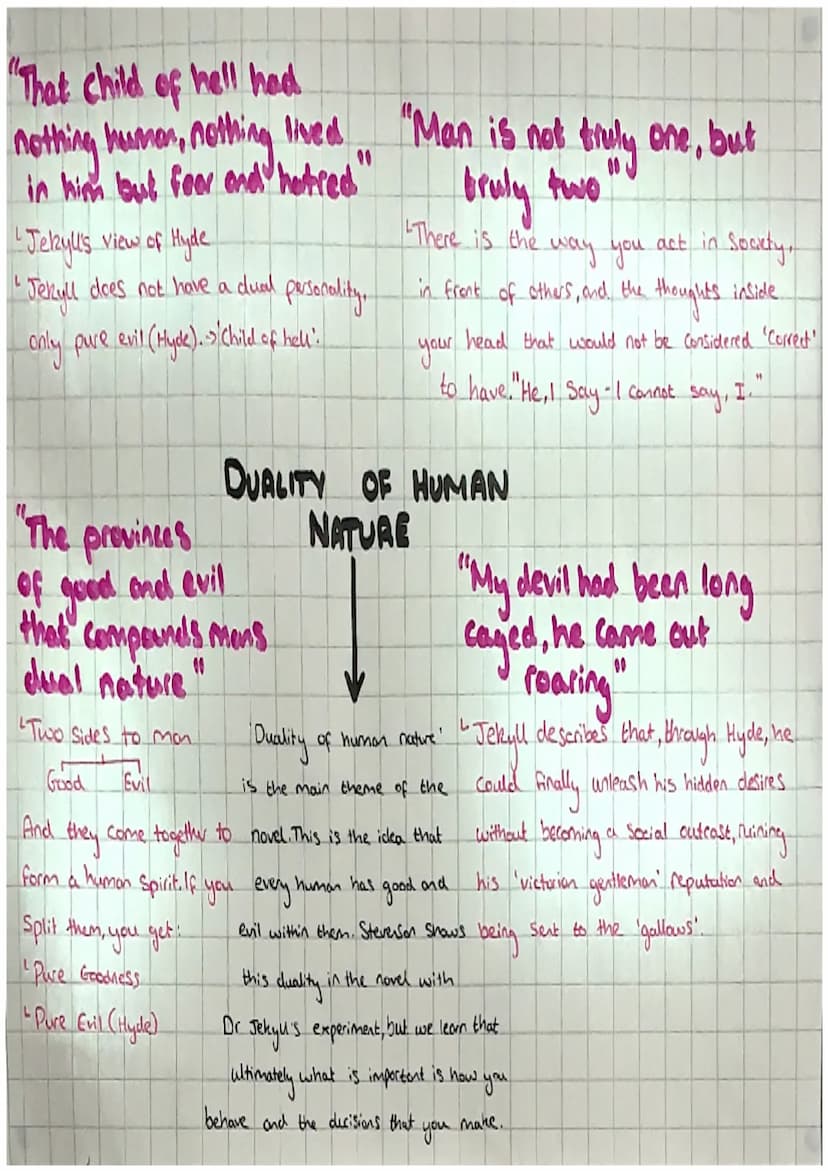 "That child of hell had
nothing human, nothing lived
in him but fear and hatred"
└Jekyll's view of Hyde
└Jekyll does not have a dual personality,
only pure evil (Hyde).→'Child of hell'.
"Man is not truly one, but
truly two"
└There is the way you act in society,
in front of others, and the thoughts inside
your head that would not be considered 'correct'
to have. "He, I say - I cannot say, I."
DUALITY OF HUMAN
NATURE
"The provinces
of good and evil
that compounds mans
dual nature"
└Two sides to man
Good Evil
And they come together to
form a human spirit. If you
split them, you get:
└Pure Goodness
└Pure Evil (Hyde)
'Duality of human nature'
is the main theme of the
novel. This is the idea that
every human has good and
evil within them. Stevenson shows
this duality in the novel with
Dr Jekyll's experiment, but we learn that
ultimately what is important is how you
behave and the decisions that you make.
"My devil had been long
caged, he came out
roaring"
└Jekyll describes that, through Hyde, he
could finally unleash his hidden desires
without becoming a social outcast, ruining
his 'victorian gentleman' reputation and
being sent to the 'gallows'.